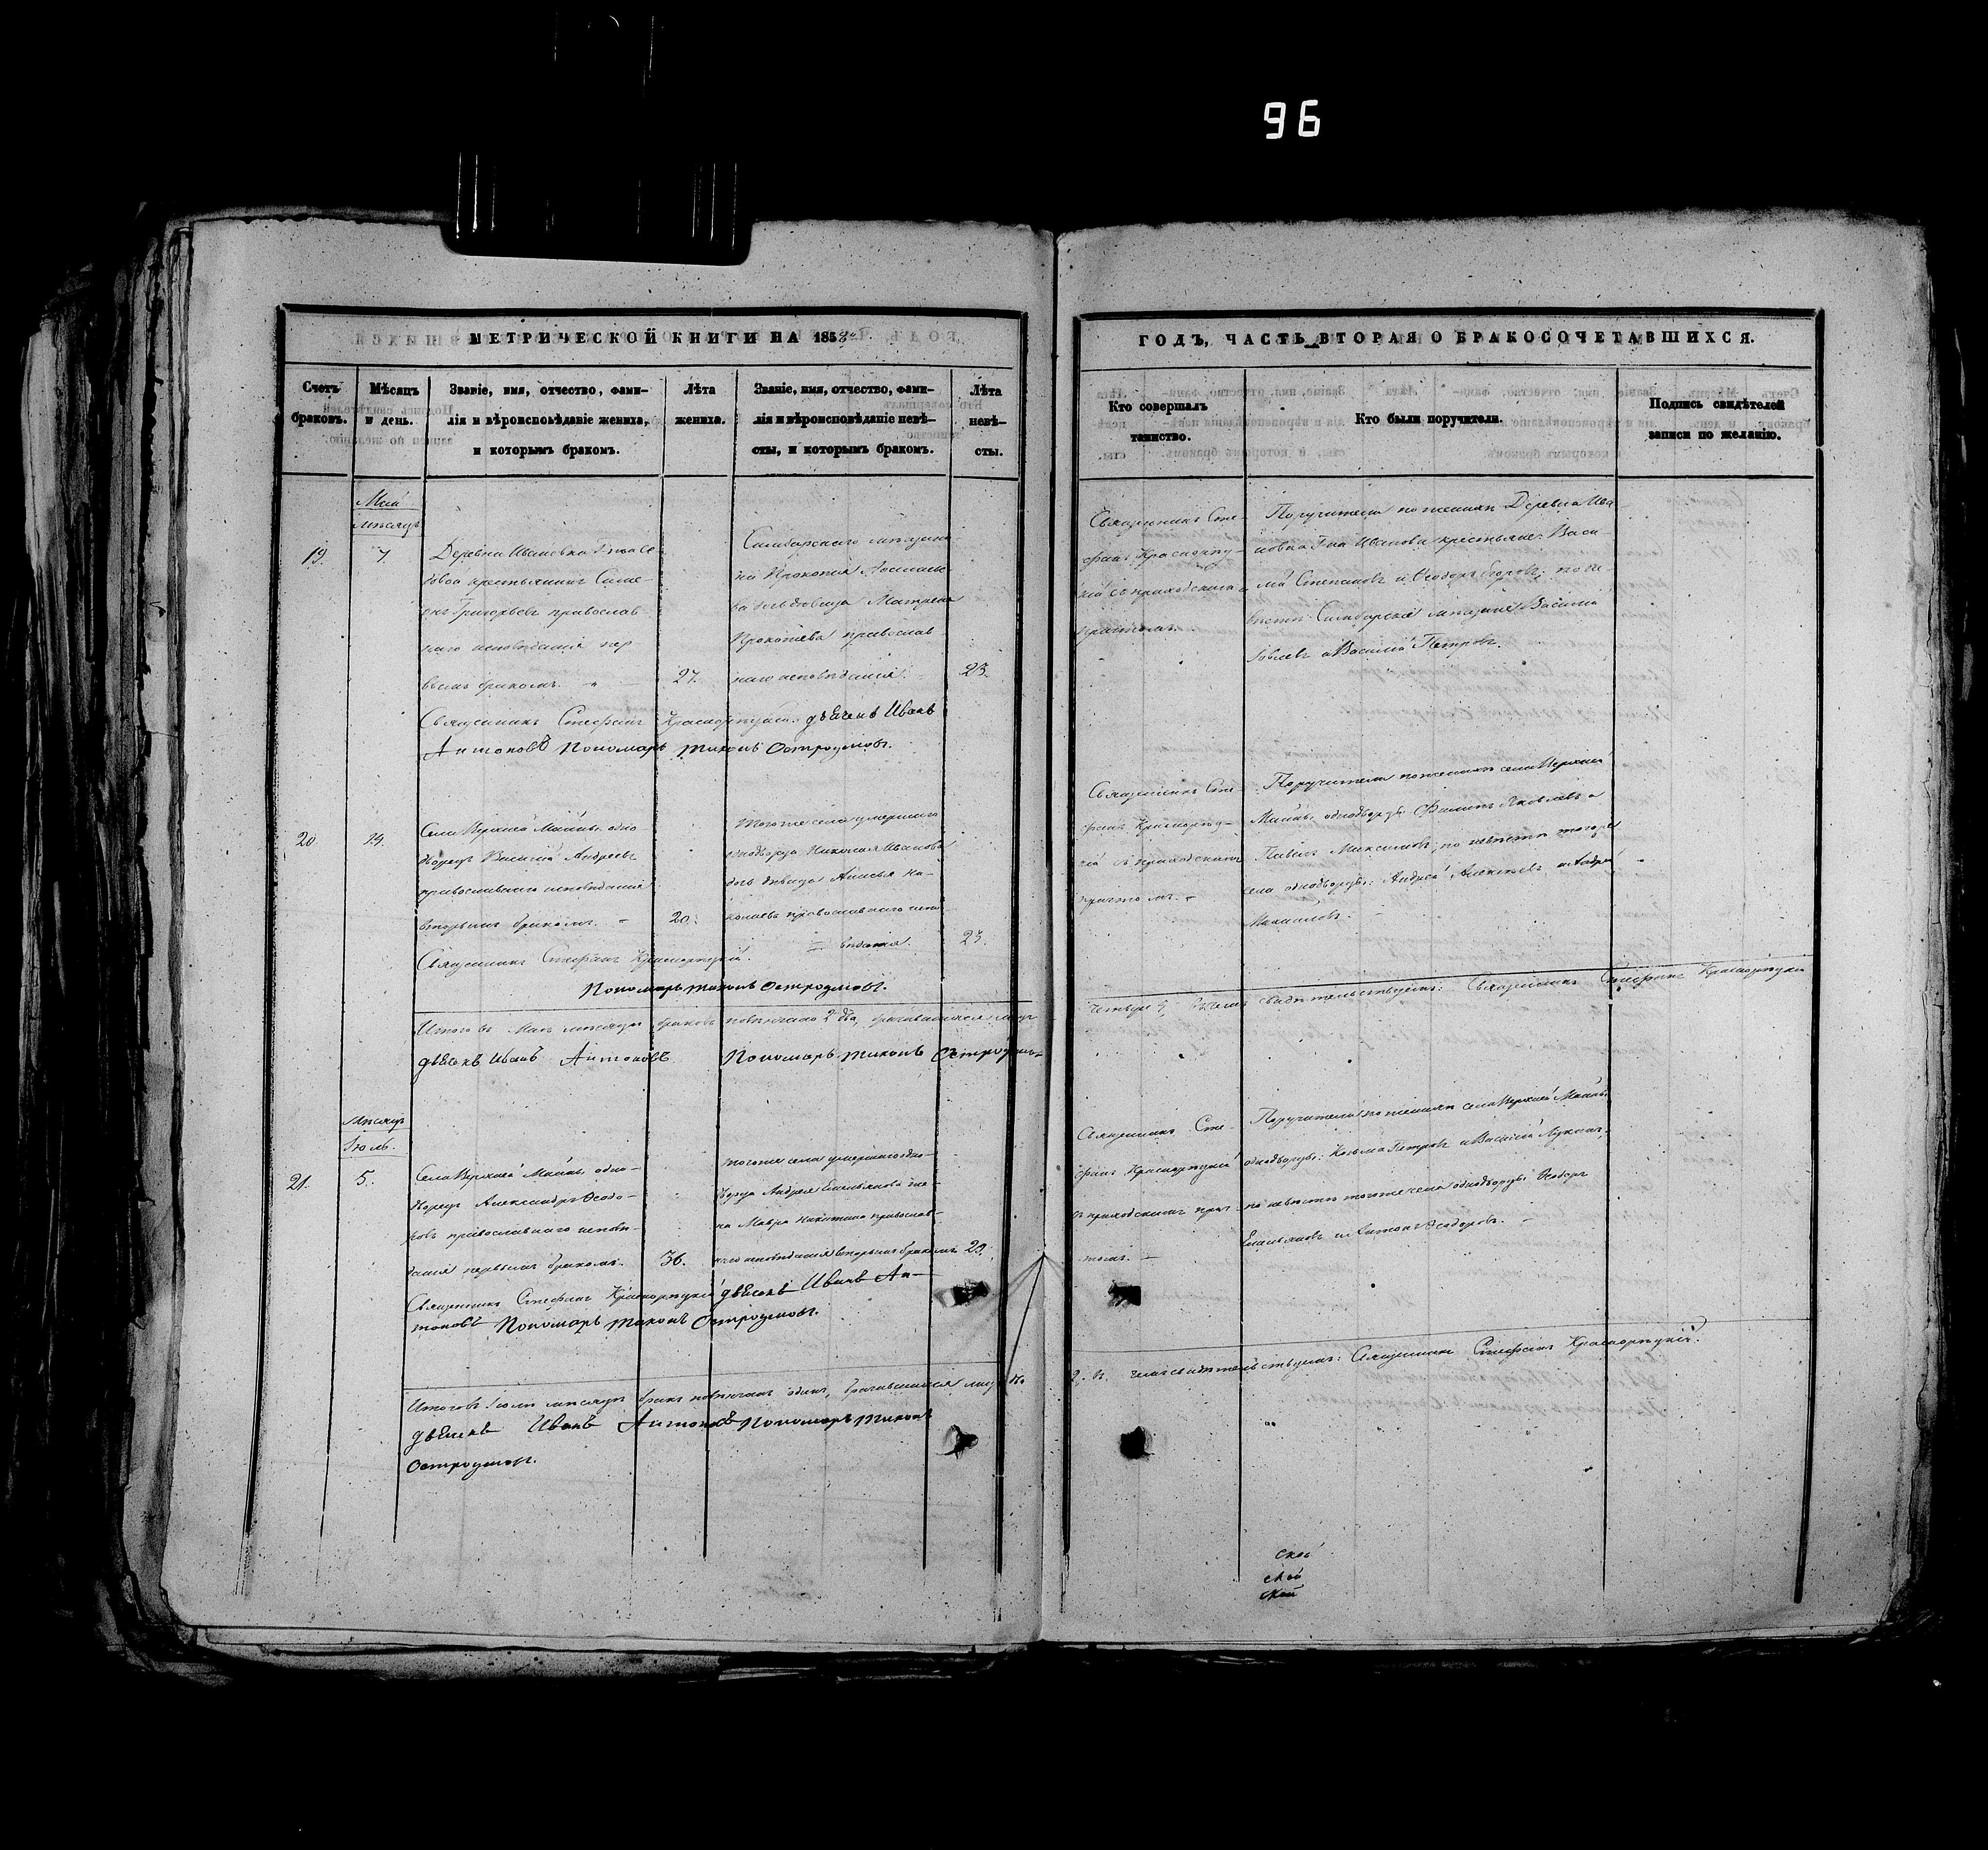 96
МЕТРИЧЕСКОЙ КНИГИ НА 1858й
Счетъ браковъ.
Мѣсяцъ и день.
Званіе, имя, отчество, фами-
лія и вѣроисповѣданіе жениха,
и которымъ бракомъ.
Лѣта
жениха.
Званіе, имя, отчество, фами-
лія и вѣроисповѣданіе невѣ-
сты, и которымъ бракомъ.
Лѣта
невѣ-
сты.
Май
мѣсяцъ
19.
7.
Деревни Ивановки
крестьянинъ Симе-
енъ Григорьевъ православ
наго исповѣданія пер
вымъ бракомъ.
27.
Симбирскаго мѣщани
на Прокопія
дочь дѣвица Матрена
Прокопьева православ
наго исповѣданія.
23.
Священникъ Стефанъ Красноруцкій. дьячекъ Иванъ
Антоновъ Пономарь Тихонъ Остроумовъ.
20
19.
Села Верхней Майны одно-
дворецъ Василій Андреевъ
православнаго исповѣданія
вторымъ бракомъ.
20.
тогоже села умершаго
однодворца Николая Иванова
дочь дѣвица Анисья Ни-
колаева православнаго испо
= вѣданія.
23.
Священникъ Стефанъ Красноруцкій.
Пономарь Тихонъ Остроумовъ.
Итого въ Маѣ мѣсяцѣ браковъ повѣнчано 2 два, брачившихся лицъ
дьячекъ Иванъ Антоновъ Пономарь Тихонъ Остроумовъ
Мѣсяцъ
Іюль.
21.
5.
Села Верхней Майны одно-
дворецъ Александръ Ѳеодо-
ровъ православнаго исповѣ-
данія первымъ бракомъ.
36.
тогоже села умершаго одно-
дворца Андрея Емельянова же-
на Мавра Никитина православ-
наго исповѣданія вторымъ бракомъ
29.
Священникъ Стефанъ Красноруцкій дьячекъ Иванъ Ан-
тоновъ Пономарь Тихонъ Остроумовъ.
Итого въ Іюлѣ мѣсяцѣ бракъ повѣнчанъ одинъ, брачившихся лицъ
дьячекъ Иванъ Антоновъ Пономарь Тихонъ
Остроумовъ.
ГОДЪ, ЧАСТЬ ВТОРАЯ О БРАКОСОЧЕТАВШИХСЯ.
Кто совершалъ
таинство.
Кто были поручители.
Подпись свидѣтелей
записи по желанію.
Священникъ Сте-
фанъ Красноруц-
кій съ приходскимъ
причтомъ.
Поручители по женихѣ Деревни Ива
новки Иванова крестьяне: Васи
лій Степановъ и Ѳеодоръ Егоровъ; по не-
вѣстѣ Симбирскіе мѣщане Василій
и Василій Петровъ.
Священникъ Сте-
фанъ Красноруц-
кій съ приходскимъ
причтомъ.
Поручители по женихѣ села Верхней
Майны однодворцы: Филипъ Яковлевъ и
Павелъ Максимовъ; по невѣстѣ тогоже
села однодворцы: Андрей Алексѣевъ и Андрей
Михайловъ.
четыре 4, въ чемъ свидѣтельствуемъ: Священникъ Стефанъ Красноруцкій
Священникъ Сте-
фанъ Красноруцкій
съ приходскимъ прич-
томъ.
Поручители по женихѣ села Верхней Майны
однодворцы: Козьма Петровъ и Василій Лукинъ,
по невѣстѣ тогоже села однодворцы Ѳеодоръ
Емельяновъ и Антонъ Ѳеодоровъ.
2, въ чемъ свидѣтельствуемъ: Священникъ Стефанъ Красноруцкій.
ской
ской
ской